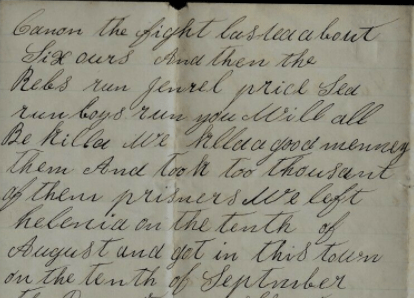 Canon the fight lasted about
Six ours And then the
Rebs run Jenrel price Sed
run boys run you Will all
Be killd We killd a good menney
them And took too thousant
of them prisners We left
helenia on the tenth of
August and got in this town
on the tenth of Septmber